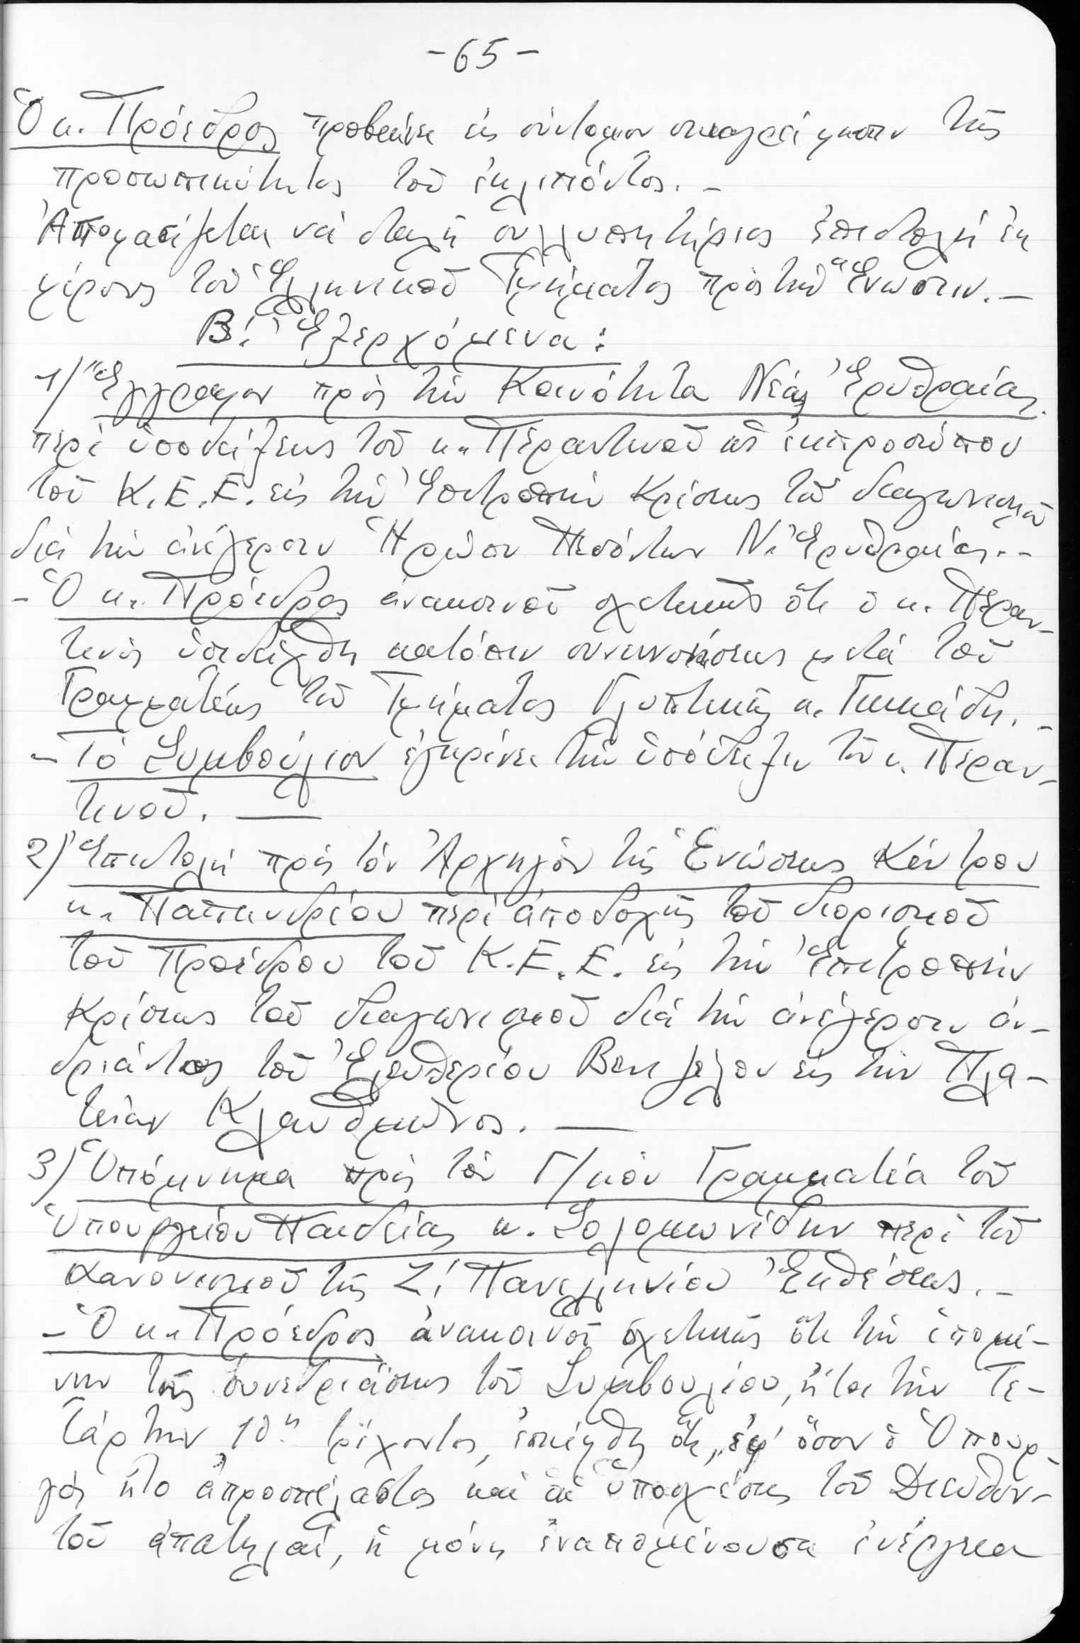 -65-
Ὁ κ. Πρόεδρος προβαίνει εἰς σύντομον σκιαγράφησιν τῆς
προσωπικότητος τοῦ ἐκλιπόντος. -
Ἀποφασίζεται νά σταλῆ συλλυπητήριος ἐπιστολή ἐκ
μέρους τοῦ Ἑλληνικοῦ Τμήματος πρός τήν Ἕνωσιν. -
Β΄. Ἐξερχόμενα:
1) Ἔγγραφον πρός τήν Κοινότητα Νέας Ἐρυθραίας
περί ὑποδείξεως τοῦ κ. Περαντινοῦ ὡς ἐκπροσώπου
τοῦ Κ.Ε.Ε. εἰς τήν Ἐπιτροπήν Κρίσεως τοῦ διαγωνισμοῦ
διά τήν ἀνέγερσιν Ἡρώου Πεσόντων Ν. Ἐρυθραίας. -
- Ὁ κ. Πρόεδρος ἀνακοινοῖ σχετικῶς ὅτι ὁ κ. Περαν-
τινός ὑπεδείχθη κατόπιν συνεννοήσεως μετά τοῦ
Γραμματέως τοῦ Τμήματος Γλυπτικῆς κ.
- Τό Συμβούλιον ἐγκρίνει τήν ὑπόδειξιν τοῦ κ. Περαν-
τινοῦ. —
2) Ἐπιστολή πρός τόν Ἀρχηγόν τῆς Ἑνώσεως Κέντρου
κ. Παπανδρέου περί ἀποδοχῆς τοῦ διορισμοῦ
τοῦ Προέδρου τοῦ Κ.Ε.Ε. εἰς τήν Ἐπιτροπήν
Κρίσεως τοῦ διαγωνισμοῦ διά τήν ἀνέγερσιν ἀν-
δριάντος τοῦ Ἐλευθερίου Βενιζέλου εἰς τήν Πλα-
τεῖαν Κλαυθμῶνος. —
3) Ὑπόμνημα πρός τόν Γ/κόν Γραμματέα τοῦ
Ὑπουργείου Παιδείας κ. Σολομωνίδην περί τοῦ
κανονισμοῦ τῆς Ζ΄ Πανελληνίου Ἐκθέσεως. -
- Ὁ κ. Πρόεδρος ἀνακοινοῖ σχετικῶς ὅτι τήν ἑπομέ-
νην τῆς συνεδριάσεως τοῦ Συμβουλίου, ἤτοι τήν Τε-
τάρτην 10ην τρέχοντος, ἐσκέφθη ὅτι, ἐφ' ὅσον ὁ Ὑπουρ-
γός ἦτο ἀπροσπέλαστος καί αἱ ὑποσχέσεις τοῦ Διευθυν-
τοῦ ἀπατηλαί, ἡ μόνη ἐναπομένουσα ἐνέργεια